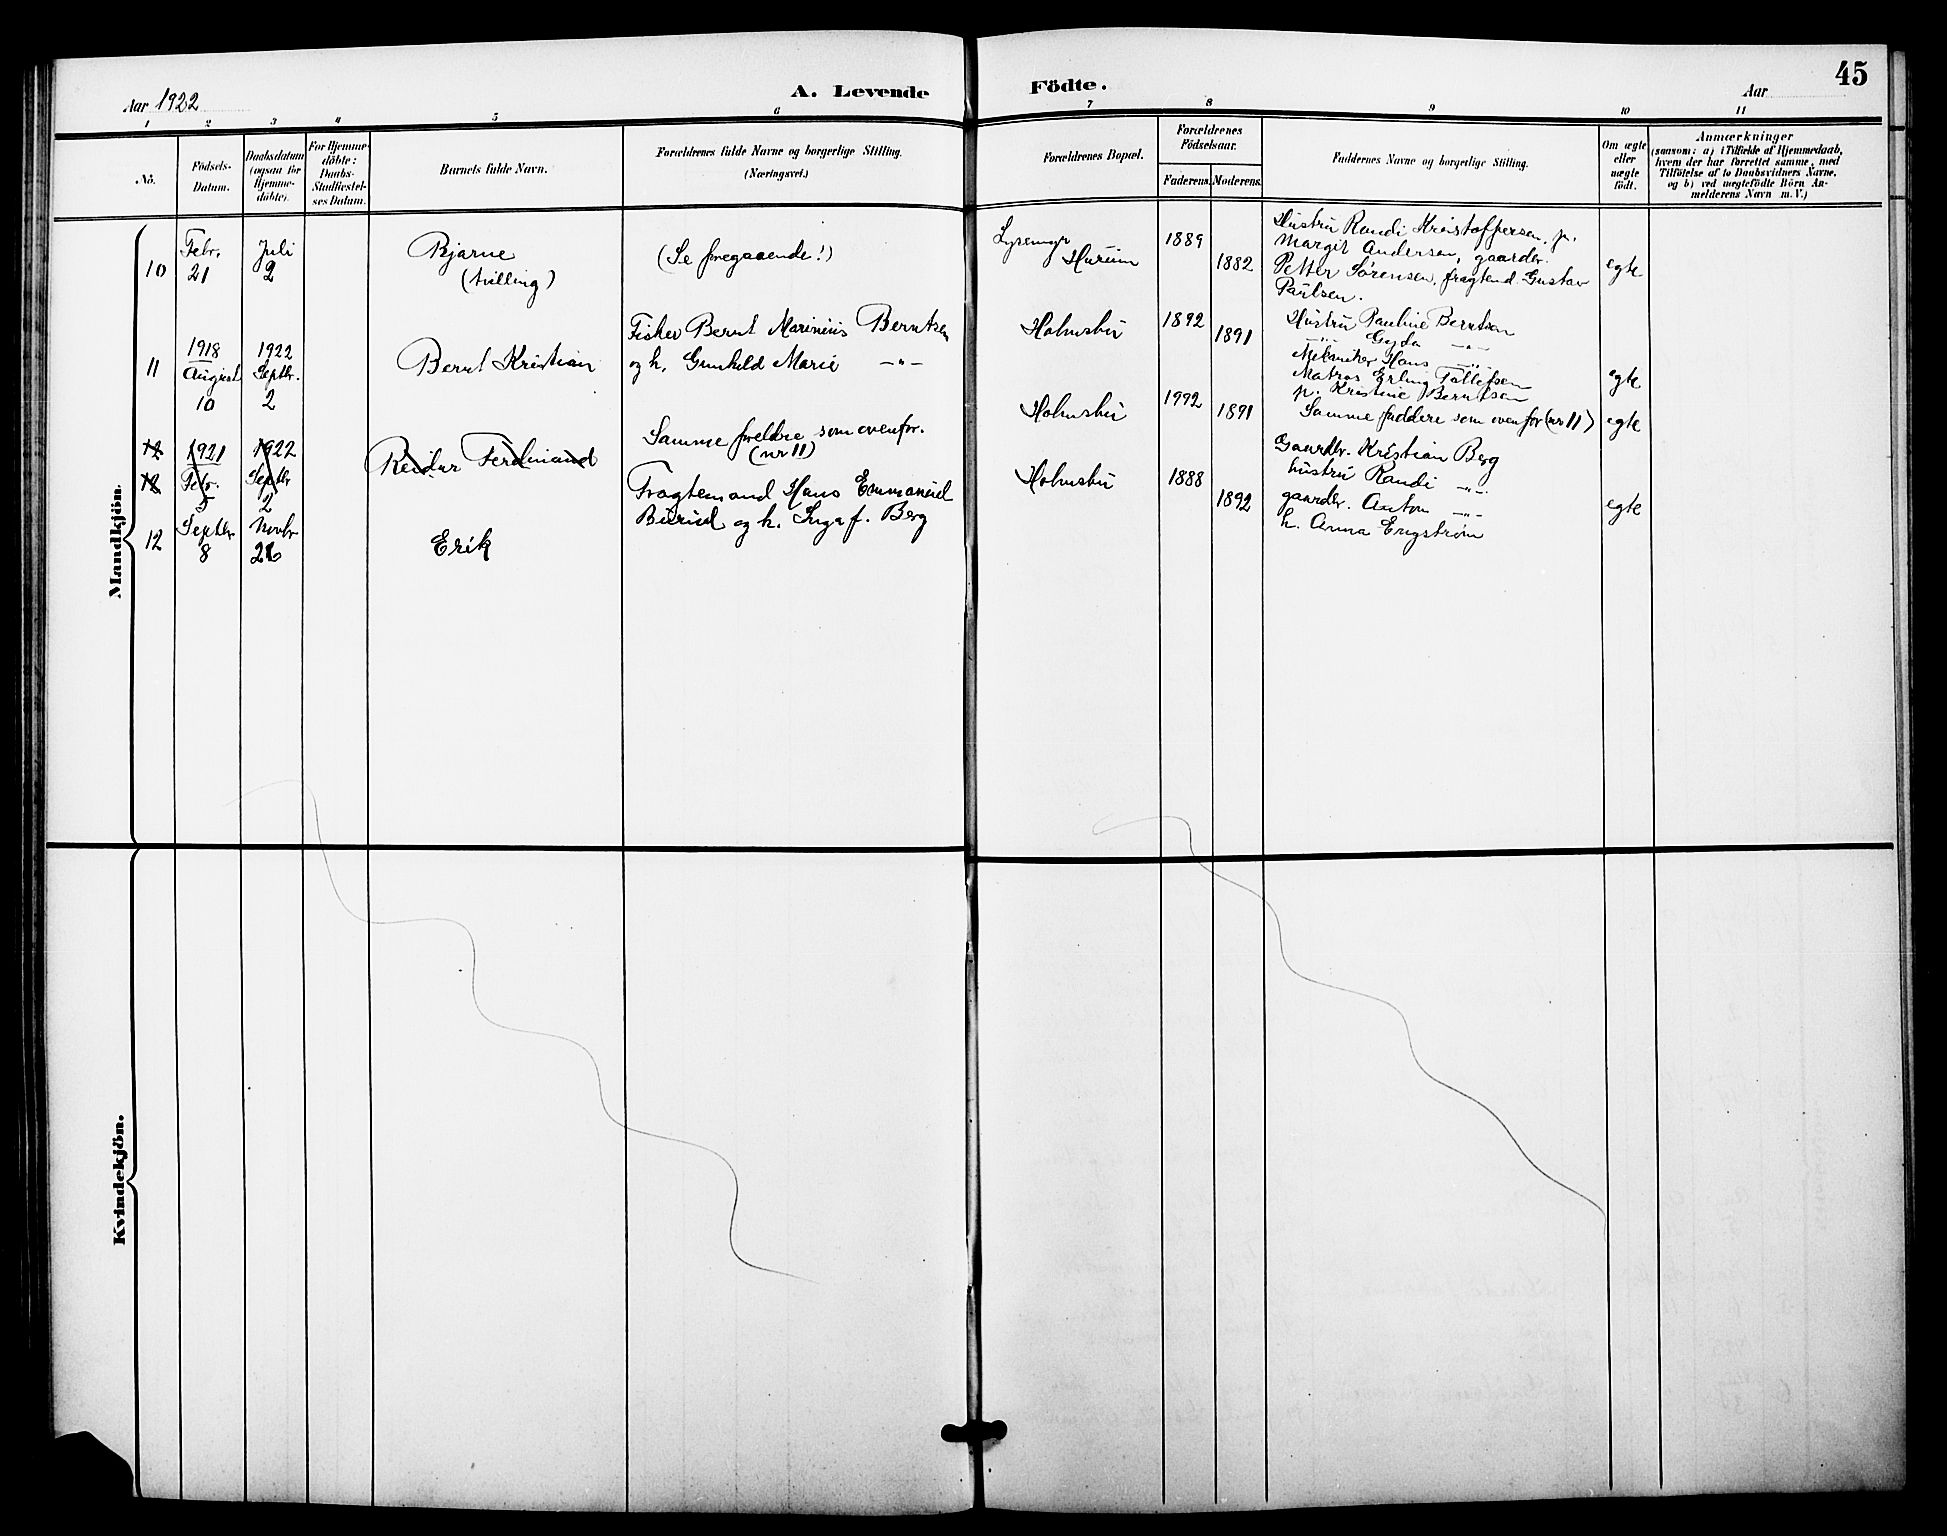 45
Aar 1922
A. Levende
Födte.
Aar
1 2 3 4 5 6 7 8 9 10 11
No.
Födsels-
Datum.
Daabsdatum
(ogsaa for
Hjemme-
döbte).
For Hjemme-
döbte:
Daabs-
Stadfæstel-
ses Datum.
Barnets fulde Navn.
Forældrenes fulde Navne og borgerlige Stilling.
(Næringsvei.)
Forældrenes Bopæl.
Forældrenes
Födselsaar.
Faderens.
Moderens.
Faddernes Navne og borgerlige Stilling.
Om ægte
eller
uægte
födt.
Anmærkninger
(saasom: a) i Tilfælde af Hjemmedaab,
hvem der har forrettet samme, med
Tilföielse af to Daabsvidners Navne,
og b) ved uægtefödte Börn An-
melderens Navn m. V.)
Mandkjön.
10
Febr.
21
Juli
2
Bjarne
(tvilling)
(Se foregaaende!)
Hurum
1889
1882
Hustru Randi Kristoffersen, p.
Margit Andersen, gaardbr.
Petter Sørensen, fragtemd. Gustav
Paulsen.
egte
11
1918
August
10
1922
Septbr.
2
Bernt Kristian
Fisker Bernt Marinius Berntsen
og h. Gunhild Marie —„—
Holmsbu
1892
1891
Hustru Pauline Berntsen
—„— Gyda —„—
Mekaniker Hans —„—
Matros Erling Tollefsen
p. Kristine Berntsen
egte
12
12
1921
Febr.
5
1922
Septbr
2
Reidar Ferdinand
Samme foreldre som ovenfor.
(nr 11)
Holmsbu
1992
1891
Samme faddere som ovenfor (nr 11)
egte
12
Septbr
8
Novbr
26
Erik
Fragtemand Hans Emmanuel
Burud og h. Inga f. Berg
Holmsbu
1888
1892
Gaardbr. Kristian Berg
hustru Randi —„—
gaardbr. Anton —„—
h. Anna Engstrøm
egte
Kvindekjön.